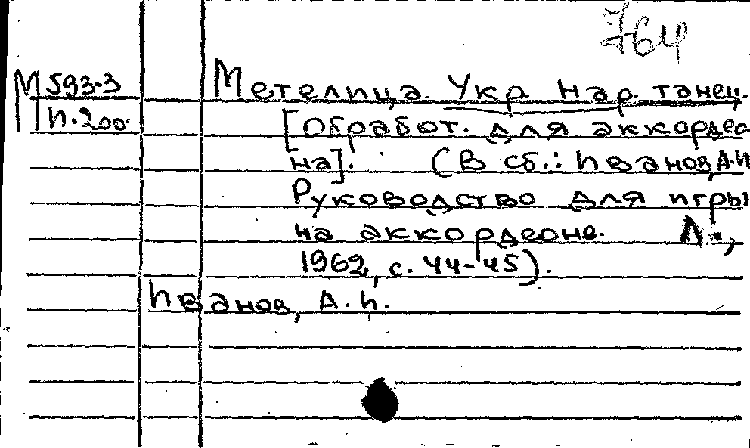 764
М593-3 Метелица. Укр. нар. танец.
И.200 [Обработ. для аккордео
на]. (В сб.: Иванов, А.И.
Руководство для игры
на аккордеоне. Л.,
1962, с. 44-45).
Иванов, А. И.